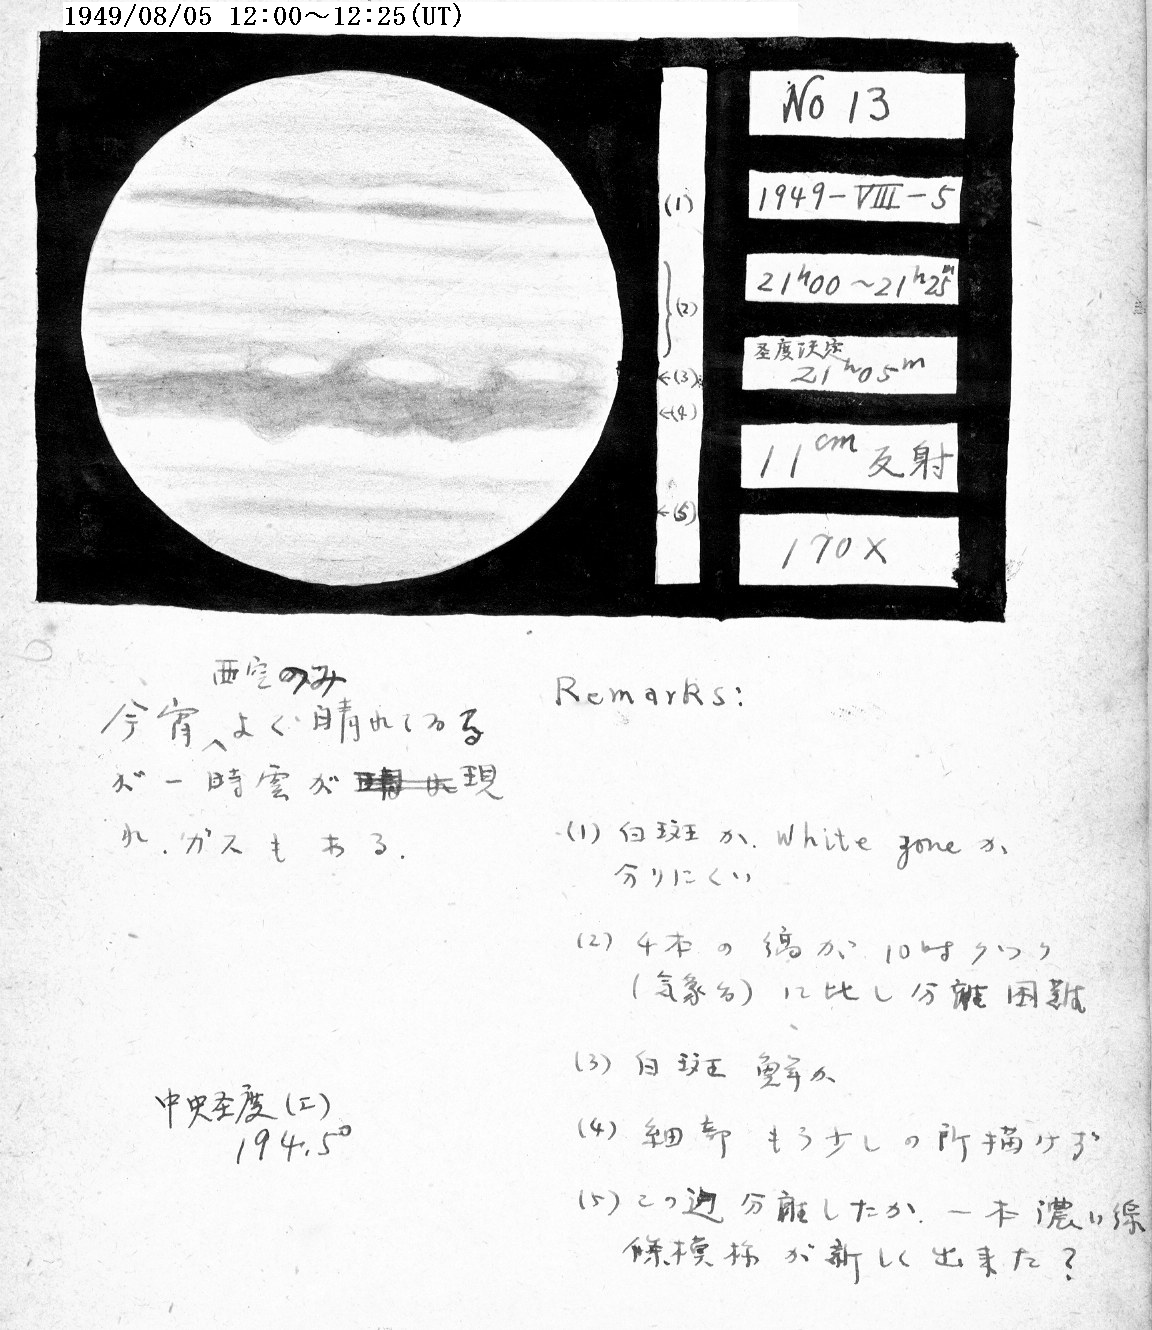 1949/08/05 12:00～12:25(UT)
No 13
1949-VIII-5
21h00～21h25m
圣度決定
21h05m
11cm反射
170×
(1)
(2)
←(3)
←(4)
←(5)
西空のみ
今宵、よく晴れてゐる
が一時雲が現
れ.ガスもある.
中央圣度(I)
194.5°
Remarks:
(1) 白斑か.White zoneか
分りにくい
(2) 4本の縞が10時
(気象台)に比し分離困難
(3) 白斑鮮か
(4) 細部もう少しの所描けず
(5) この辺分離したか.一本濃い線
條模様が新しく出来た?